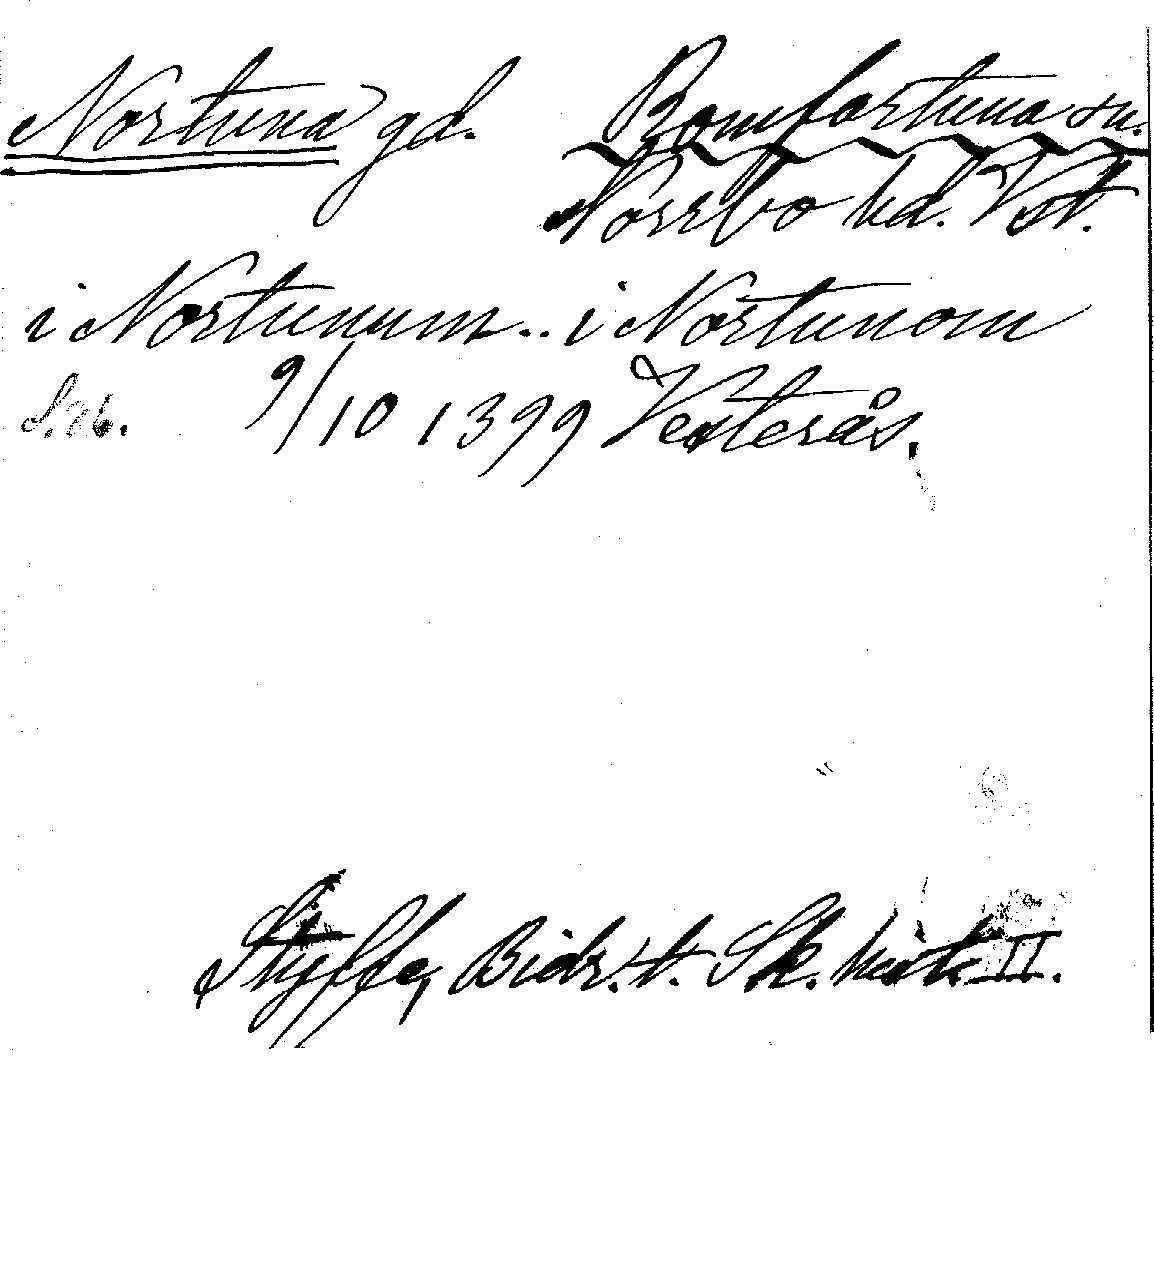 Nortuna gd. Romfartuna sn.
Norrbo hd. Vst.
i Nortunum .. i Nortunom
S. 26. 9/10 1399 Vesterås.
Styffe, Bidr. t. Sk. hist. II.